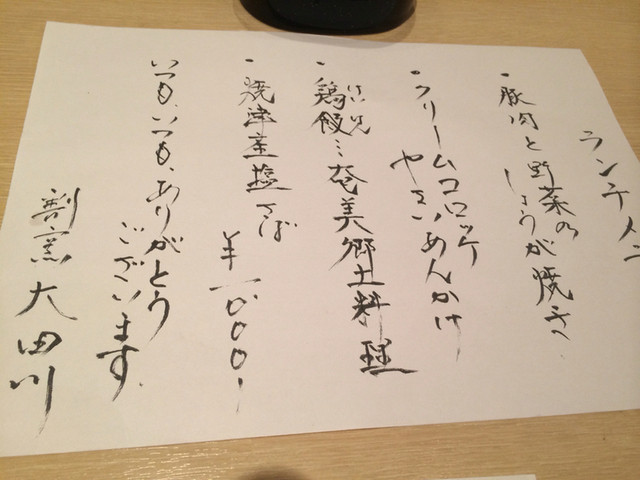 ランチメニ
・豚肉と野菜の
しょうが焼き
・クリームコロッケ
やさいあんかけ
・鶏飯ミ奄美郷土料理
けいはん
・焼津産塩さば
￥一〇〇〇、
いつも、いつも、ありがとう
ございます、
割烹大田川